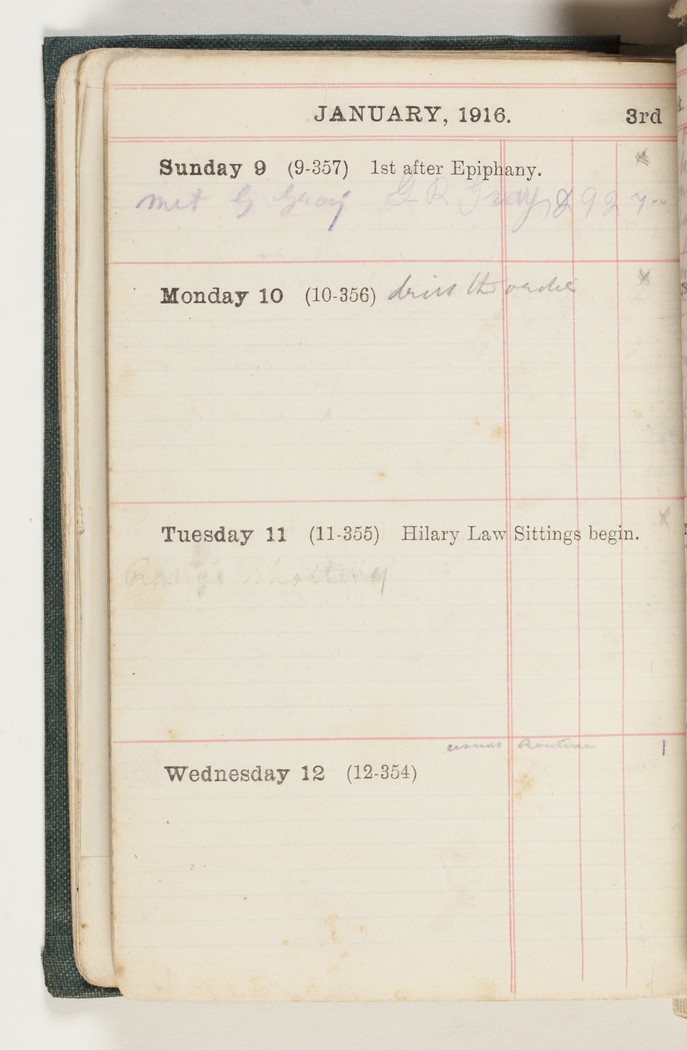 JANUARY, 1916. 3rd
Sunday 9 (9-357) 1st after Epiphany.
met G Gray G R Gray
Monday 10 (10-356)
Tuesday 11 (11-355) Hilary Law Sittings begin.
Range shotting
usual Routine
Wednesday 12 (12-354)